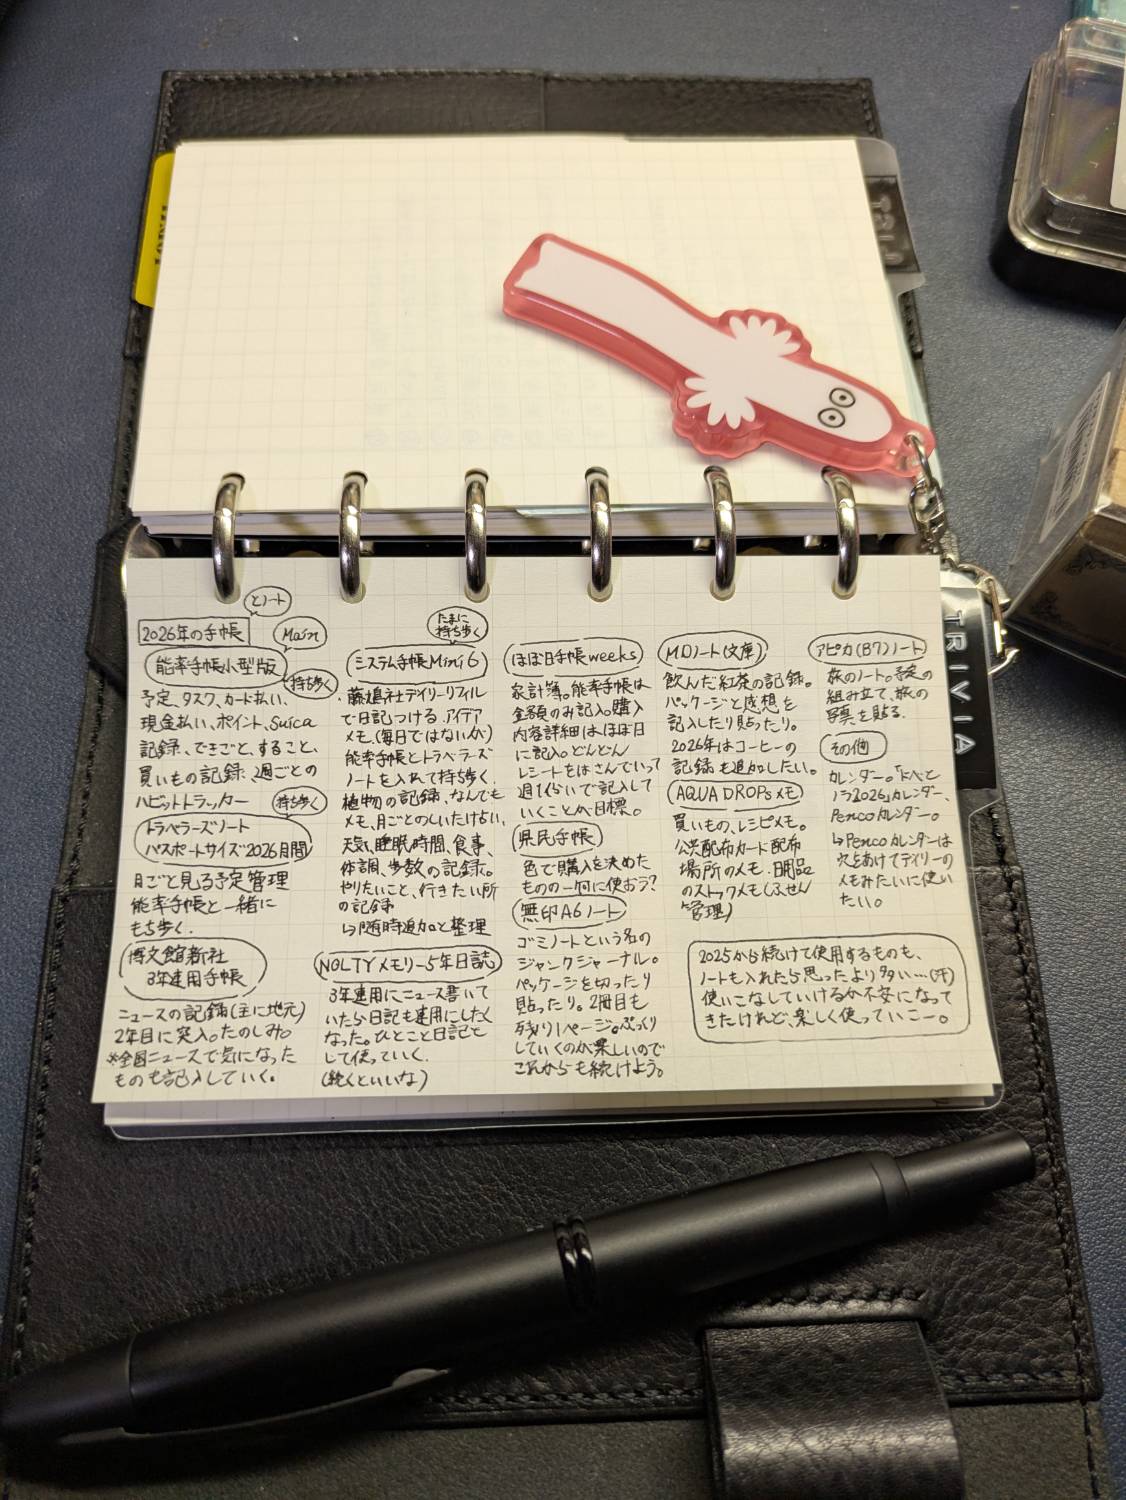 とノート
2026年の手帳
Main
能率手帳小型版
持ち歩く
予定、タスク、カード払い、
現金払い、ポイント、Suica
記録、できごと、すること、
買いもの記録、週ごとの
ハビットトラッカー
持ち歩く
トラベラーズノート
パスポートサイズ2026月間
月ごと見る予定管理
能率手帳と一緒に
もち歩く。
博文館新社
3年連用手帳
ニュースの記録(主に地元)
2年目に突入。たのしみ。
※全国ニュースで気になった
ものも記入していく。
たまに
持ち歩く
システム手帳Mini6
藤嶋社デイリーリフィル
で日記つける。アイデア
メモ。(毎日ではないが)
能率手帳とトラベラーズ
ノートを入れて持ち歩く。
植物の記録、なんでも
メモ、月ごとのしいたけ占い、
天気、睡眠時間、食事、
体調、歩数の記録。
やりたいこと、行きたい所
の記録
↳随時追加と整理
NOLTYメモリー5年日誌
3年連用にニュース書いて
いたら日記も連用にしたく
なった。ひとこと日記と
して使っていく。
(続くといいな)
ほぼ日手帳weeks
家計簿。能率手帳は
金額のみ記入。購入
内容詳細はほぼ日
に記入。どんどん
レシートをはさんでいって
週1くらいで記入して
いくことが目標。
県民手帳
色で購入を決めた
ものの…何に使おう?
無印A6ノート
ゴミノートという名の
ジャンクジャーナル。
パッケージを切ったり
貼ったり。2冊目も
残り1ページ。ぷっくり
していくのが楽しいので
これからも続けよう。
MDノート(文庫)
飲んだ紅茶の記録。
パッケージと感想を
記入したり貼ったり。
2026年はコーヒーの
記録も追加したい。
AQUA DROPsメモ
買いもの、レシピメモ。
公共配布カード配布
場所のメモ。日用品
のストックメモ(ふせん
管理)
アピカ(B7)ノート
旅のノート。予定の
組み立て、旅の
写真を貼る。
その他
カレンダー。「ドべとノラ2026」カレンダー、
Pencoカレンダー。
↳Pencoカレンダーは
穴をあけてデイリーの
メモみたいに使い
たい。
2025から続けて使用するものも、
ノートも入れたら思ったより多い…(汗)
使いこなしていけるか不安になって
きたけれど、楽しく使っていこー。
TRIVIA